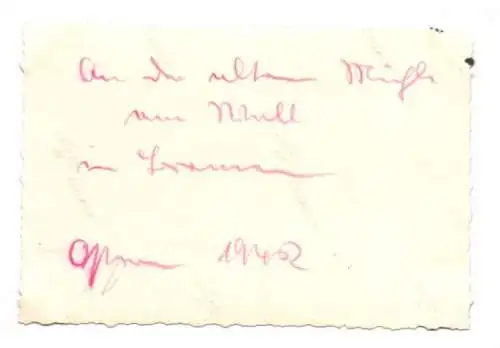 An der alten Mühle
am Wall
in Bremen
Ostern 1942